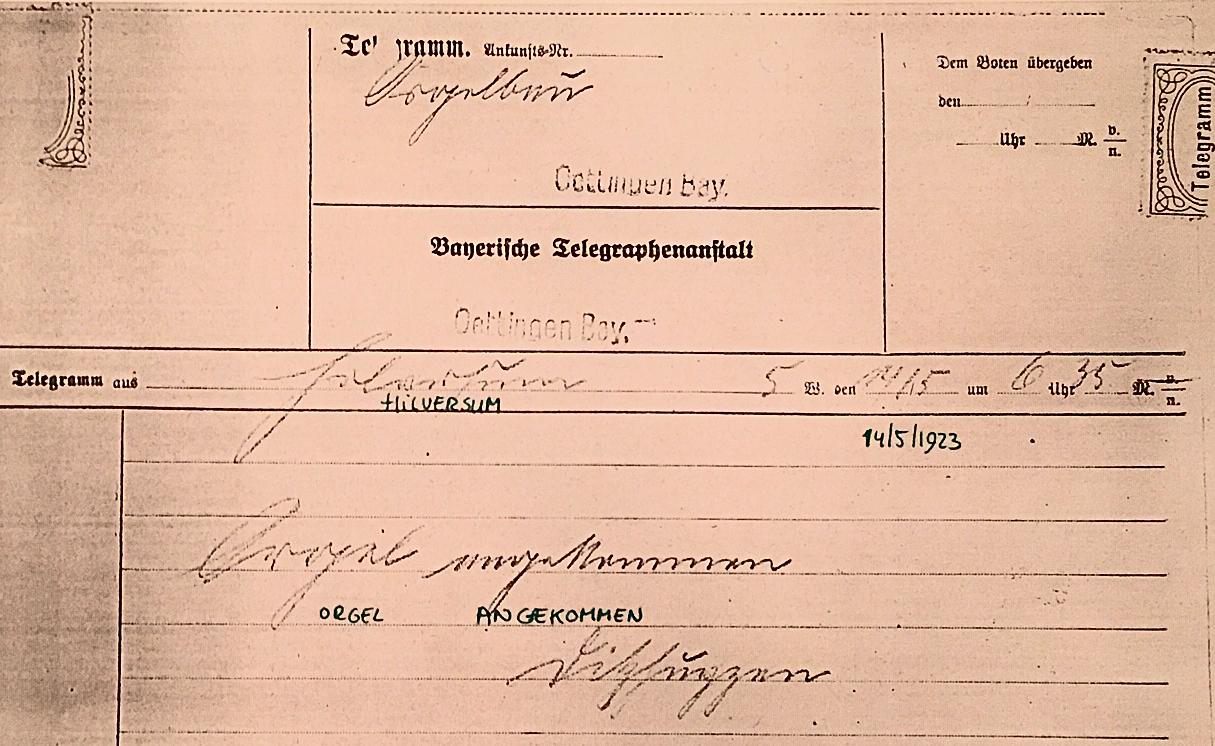 Telegramm. Ankunfts-Nr.
Orgelbau
Oettingen Bay.
Dem Boten übergeben
den
Uhr M. v.
n.
Telegramm
Bayerische Telegraphenanstalt
Oettingen Bay.
Telegramm aus Hilversum 5 W. den 14/5 um 6 Uhr 35 M. v.
n.
HILVERSUM
14/5/1923
Orgel angekommen
ORGEL ANGEKOMMEN